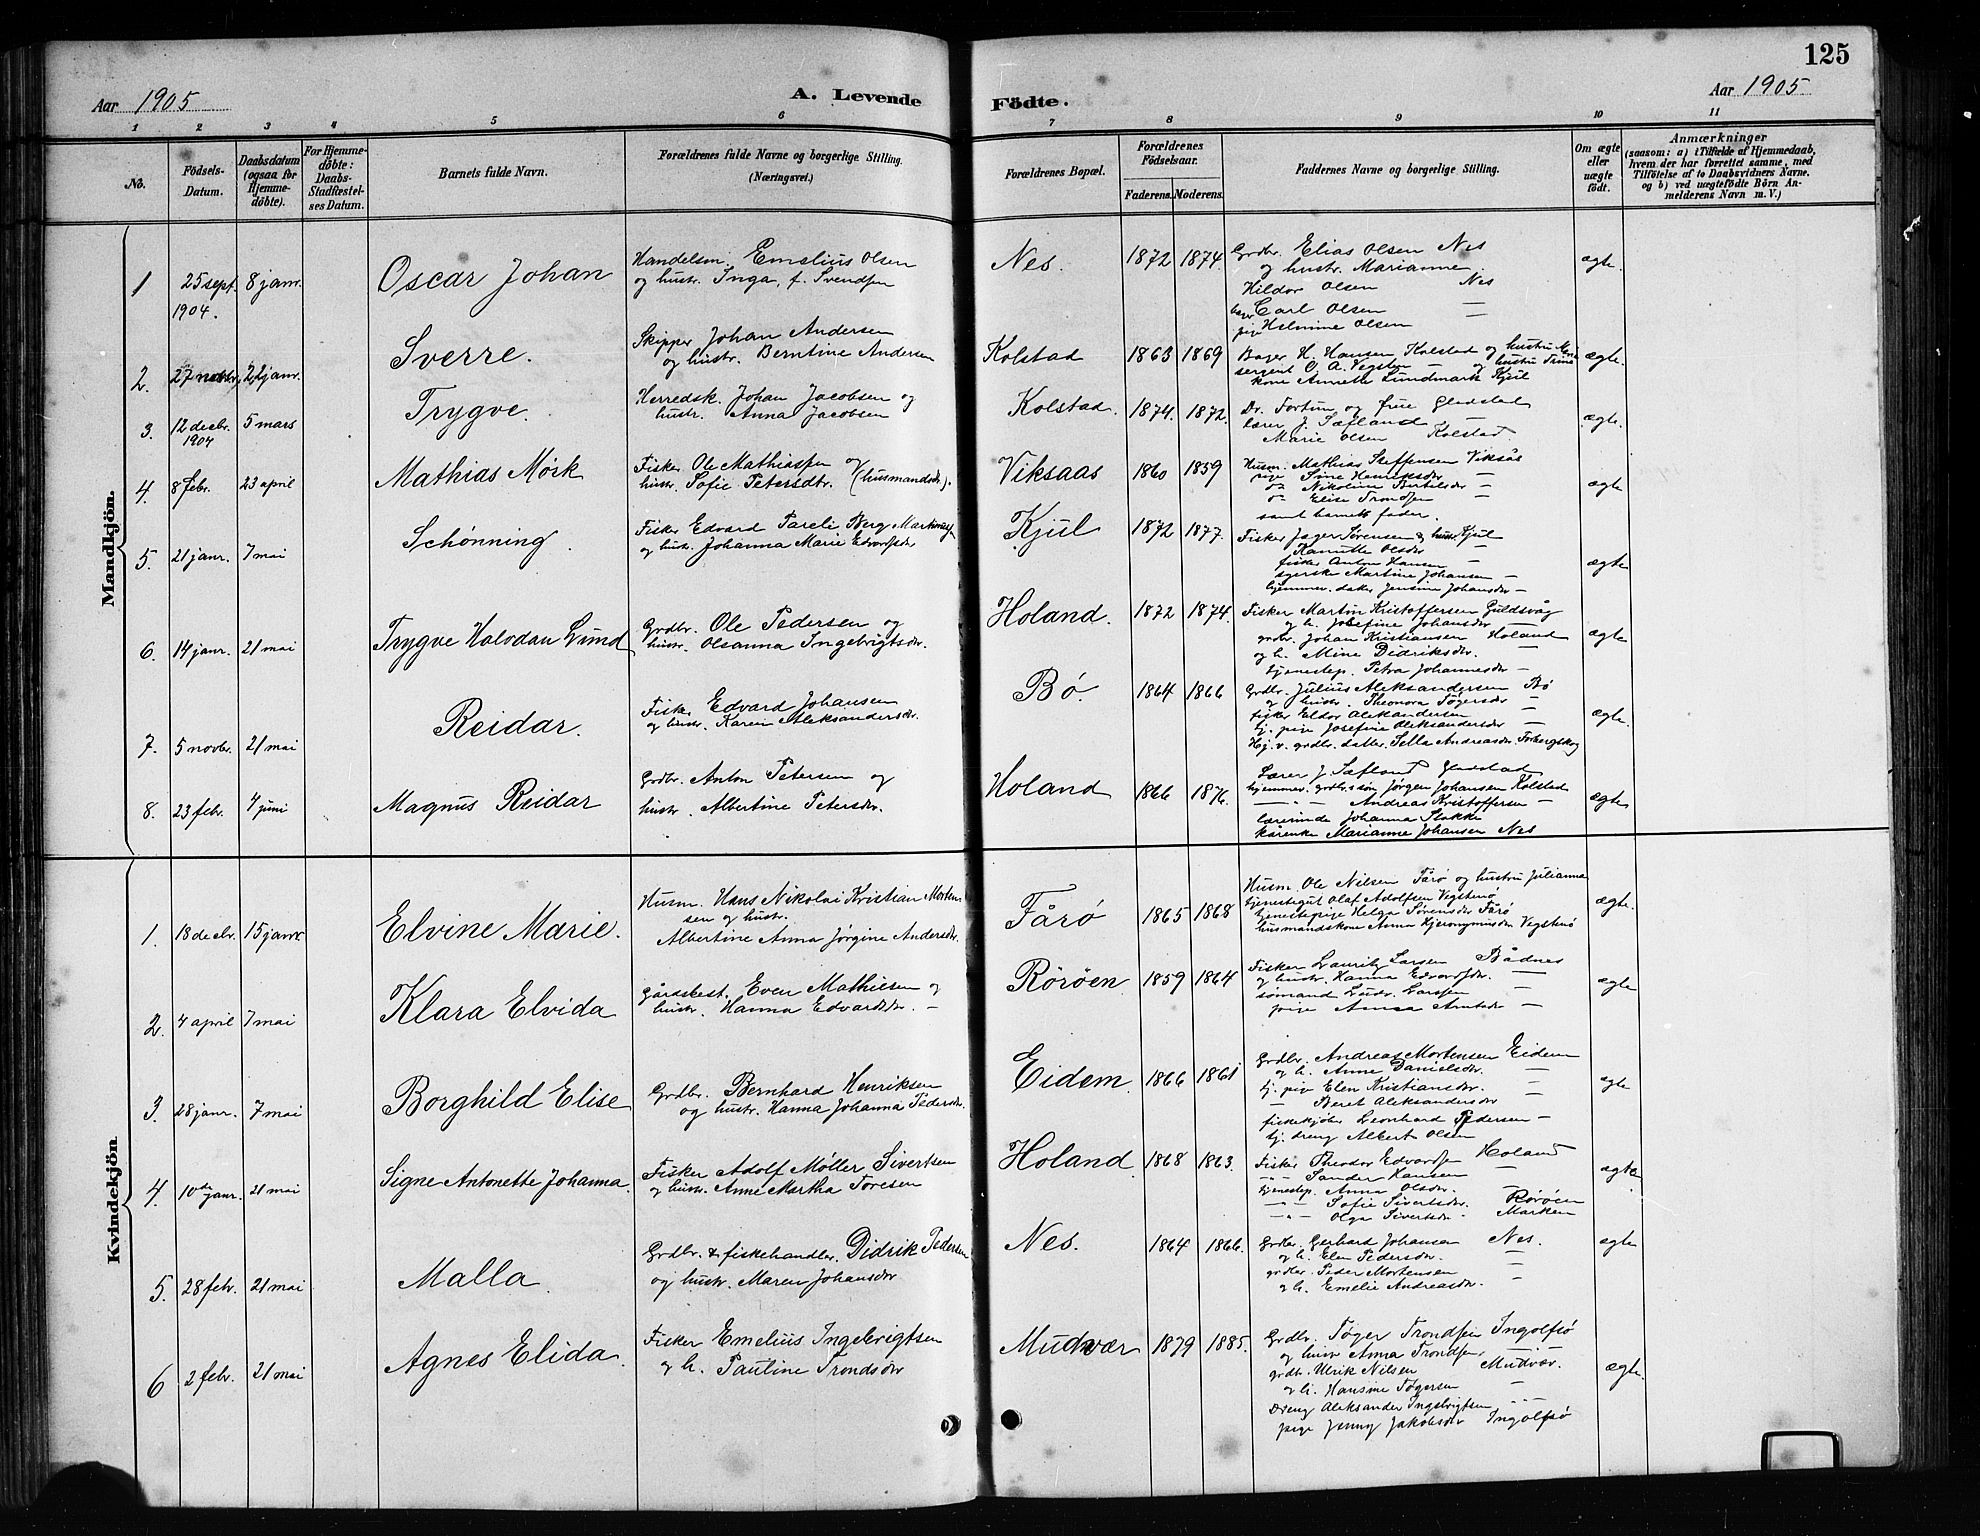 125
Aar 1905 A. Levende Födte. Aar 1905
1 2 3 4 5 6 7 8 9 10 11
No. Födsels-Datum. Daabsdatum (ogsaa for Hjemmedöbte). For Hjemmedöbte: Daabs-Stadfæstelses Datum. Barnets fulde Navn. Forældrenes fulde Navne og borgerlige Stilling. (Næringsvei.) Forældrenes Bopæl. Forældrenes Födselsaar. Faderens. Moderens. Faddernes Navne og borgerlige Stilling. Om ægte eller uægte födt. Anmærkninger (saasom: a) i Tilfælde af Hjemmedaab, hvem der har forrettet samme, med Tilföielse af to Daabsvidners Navne, og b) ved uægtefödte Börn Anmelderens Navn m. V.)
Mandkjön.
1 25 sept. 1904. 8 janr. Oscar Johan
Handelsm. Emelius Olsen
og hustr. Inga, f. Svendsen
Nes. 1872 1874.
Grdbr. Elias Olsen Nes
og hustr. Marianne
Hildor Olsen Nes
Carl Olsen —
pige Helmine Olsen
ægte.
2. 27 novbr. 22 janr. Sverre.
Skipper Johan Andersen
og hustr. Berntine Andersen
Kolstad 1863 1869
Bager H. Hansen Kolstad og hustru
sergent O. A. Vegsten — og hustru Trine
kone Annette Lundmark Kjul
ægte.
3. 12 decbr. 1904 5 mars Trygve.
Herredsk. Johan Jacobsen og
hustr. Anna Jacobsen
Kolstad. 1874. 1872.
Dr. Fortun og frue Gladstad
Lærer J. Sæfland —
Marie Olsen Kolstad.
ægte.
4. 8 febr. 23 april Mathias Mörk
Fisker Ole Mathiassen og
hustr. Sofie Petersdtr. (husmandsdr.).
Viksaas 1860 1859
Husm. Mathias Steffensen Viksås
pige Sine Henriksdr —
do Nikoline Bertelsdr —
do Elise Trondsen
samt barnets fader.
ægte
5. 21 janr. 7 mai Schönning.
Fisker Edvard Pareli Berg
og hustr. Johanna Marie Edvardsdr
Kjul 1872 1877.
Fisker Jager Sörensen & hustr. Kjul
Hanutte Olsdr —
fisker Anton Hansen —
syerske Martine Johansen —
hjemmev. datter Jensine Johansdr —
ægte
6. 14 janr. 21 mai Trygve Halvdan Lund
Grdbr. Ole Pedersen og
hustr. Olsanna Ingebrigtsdr.
Holand. 1872 1874.
Fisker Martin Kristoffersen Guldsvåg
og h. Josefine Johansdr —
grdbr. Johan Kristiansen Holand
og h. Mine Didriksdr. —
tjenestep. Petra Johannesdr —
ægte
7. 5 novbr. 21 mai Reidar.
Fisker Edvard Johansen
og hustr. Karen Aleksandersdr.
Bö. 1864 1866
Grdbr. Julius Aleksandersen Bö
og hustr. Theonora Tögersdr —
fisker Eldor Aleksandersen
tj. pige Josefine Aleksandersdr —
Hj. v. grdbr. datter Sella Andreasdr. Forbergskog
ægte.
8. 23 febr. 4 juni Magnus Reidar
Grdbr. Anton Petersen og
hustr. Albertine Petersdr.
Holand 1866 1876.
Lærer J. Sæfland Gladstad
hjemmev. grdbr.s søn Jørgen Johansen Kolstad
— " — Andreas Kristoffersen —
lærerinde Johanna Stokke
kårenke Marianne Johansen Nes
ægte
Kvindekjön
1. 18 decbr. 15 janr. Elvine Marie.
Husm. Hans Nikolai Kristian Mortensen og hustr.
Albertine Anna Jørgine Andersdr.
Fårø 1865 1868
Husm. Ole Nilsen Fårø og hustru Julianna
tjenestegut Olaf Adolfsen Vegstenö
tjenestepige Helga Sörensdr Fårø
husmandskone Anna Hjeronymusdr Vegstenö
ægte.
2. 4 april 7 mai Klara Elvida
Gårdsbest. Even Mathiesen og
hustr. Hanna Edvardsdr. —
Röröen 1859 1864
Fisker Lauritz Larsen Bådnes
og hustr. Hanna Edvardsdr. —
sømand Ludv. Larssen —
pige Anna Arntsdr —
ægte
3. 28 janr. 7 mai Borghild Elise
Grdbr. Bernhard Henriksen
og hustr. Hanna Johanna Pedersdr.
Eidem 1866 1861
Grdbr. Andreas Mortensen Eidem
og h. Anne Danielsdr. —
tj. pige Elen Kristiansdr. —
— Beret Aleksandersdr —
fiskekjöber Leonhard Pedersen —
tj. dreng Albert Olsen
ægte
4. 10de janr. 21 mai Signe Antonette Johanna.
Fisker Adolf Møller Sivertsen
og hustr. Anne Martha Toresen
Holand 1868 1863.
Fisker Theodor Edvardsen Holand
— " — Sander Hansen —
tjenestep. Anna Olsdr. —
— " — Sofie Sivertsdr. Röröen
— " — Olga Sivertsdr. Marken
ægte.
5. 28 febr. 21 mai Malla.
Grdbr. & fiskehandler Didrik Pedersen
og hustr. Maren Johansdr
Nes. 1864 1866.
Grdbr. Gerhard Johansen Nes.
og h. Elen Pedersdr. —
grdbr Peder Mortensen —
og h. Emelie Andreasdr. —
ægte
6 2 febr. 21 mai Agnes Elida.
Fisker Emelius Ingebrigtsen
og h. Pauline Trondsdr
Mudvær 1879 1885.
Grdbr. Tøger Trondsen Ingolfsö
og hustr Anna Trondsen
grdb. Ulrik Nilsen Mudvær.
og h. Hansine Tøgersen —
Dreng Aleksander Ingebrigtsen
pige Jenny Jakobsdr Ingolfsö
ægte.